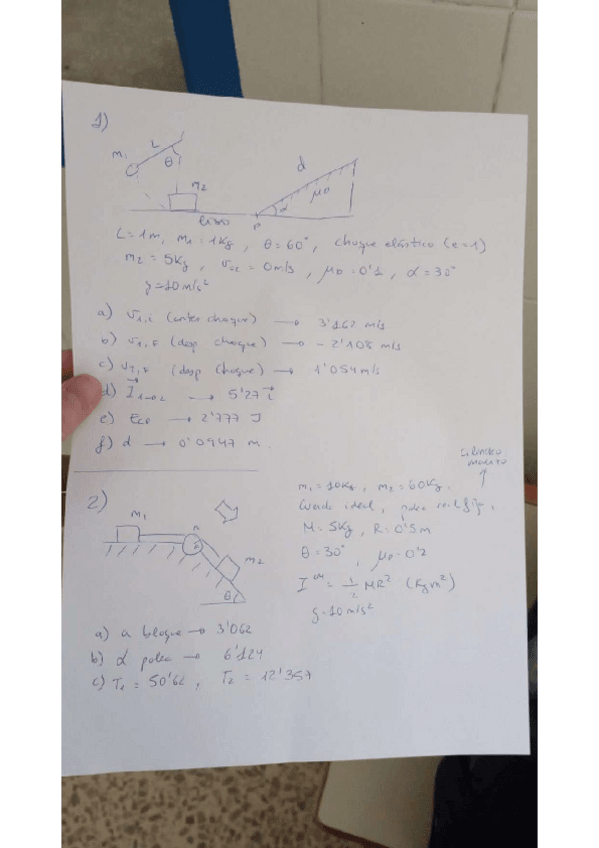 1)
m₁
L
θ
m₂
liso
P
α
μD
d
L = 1m, m₁ = 1Kg, θ = 60°, choque elástico (e=1)
m₂ = 5Kg, v₀₂ = 0m/s, μD = 0'1, α = 30°
g = 10 m/s²
a) v₁,i (antes choque) → 3'162 m/s
b) v₁,F (desp choque) → - 2'108 m/s
c) v₂,F (desp choque) → 1'054 m/s
d) I⃗₁→₂ → 5'27 i⃗
e) Ec₂ → 2'777 J
f) d → 0'0947 m.
2)
m₁
R
m₂
θ
m₁ = 10Kg, m₂ = 60Kg.
Cuerda ideal, polea real fija,
cilindro
macizo
M = 5Kg, R = 0'5m
θ = 30°, μD = 0'2
I^CM = 1/2 MR² (Kg m²)
g = 10 m/s²
a) a bloque → 3'062
b) α polea → 6'124
c) T₁ = 50'62, T₂ = 12'357